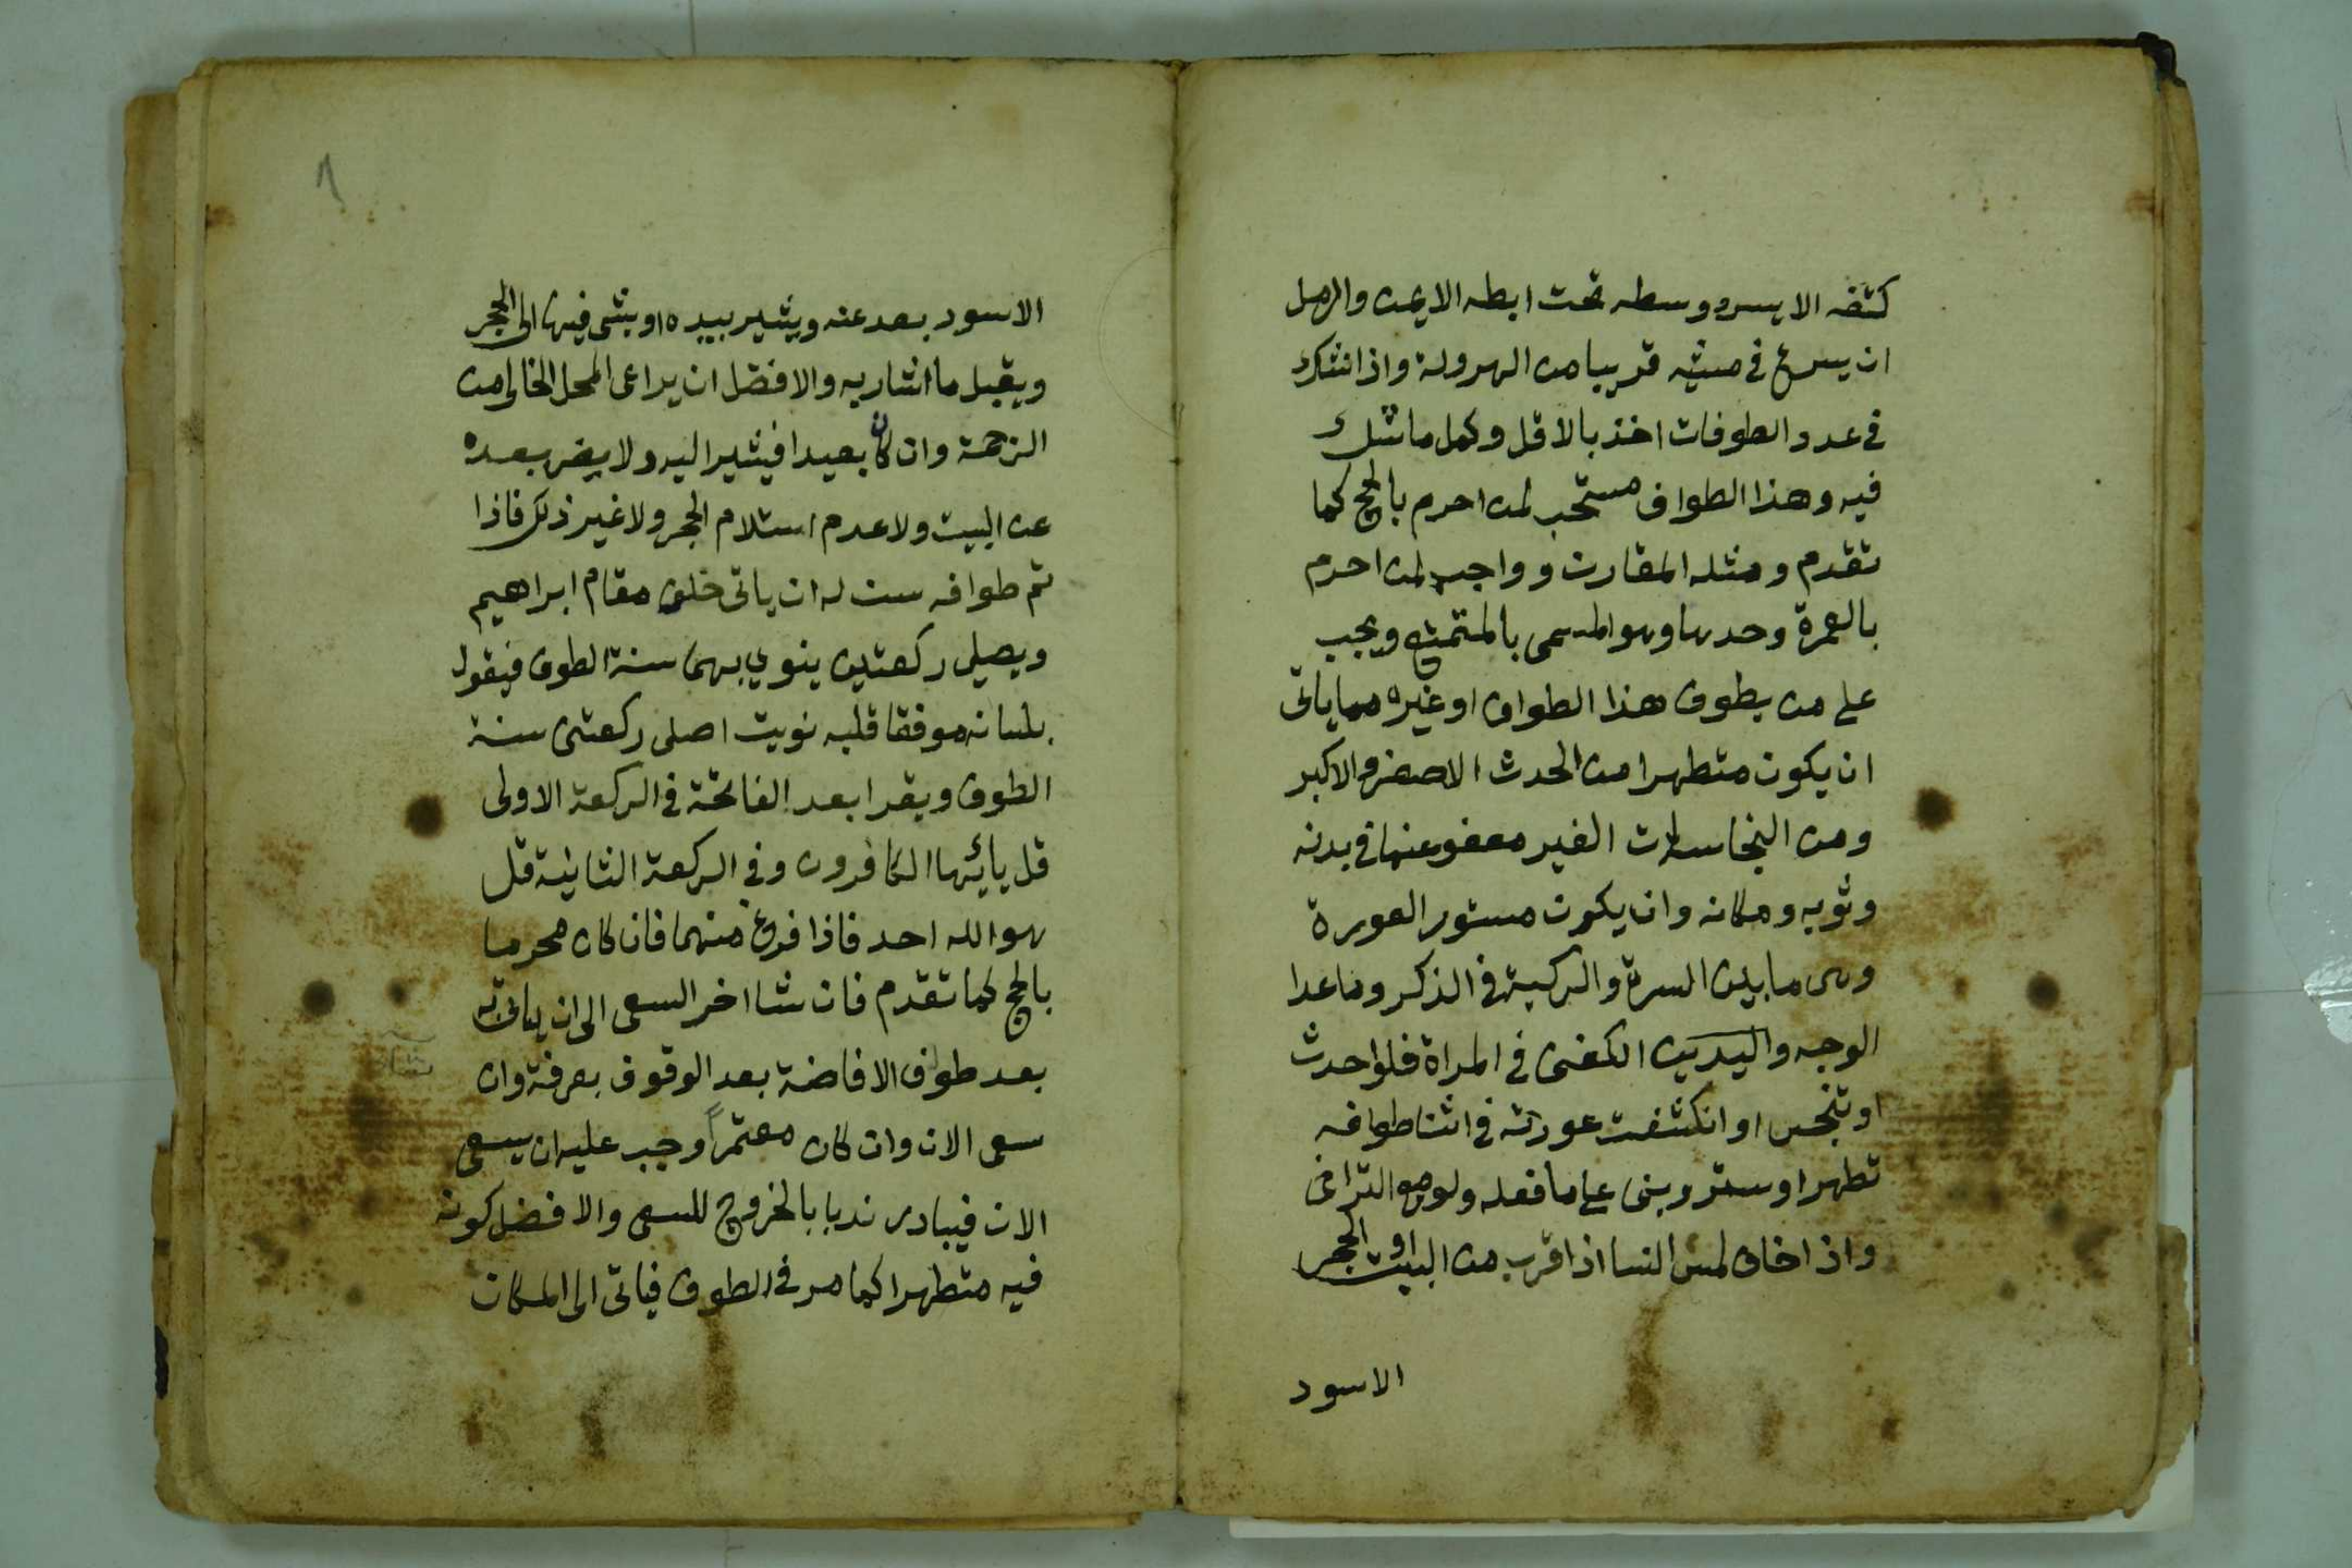 كتفه الايسر ووسطه تحت ابطه الايمن والرمل
ان يسرع في مشيه قريبا من الهرولة واذا شك
في عدد الطوفات اخذ بالاقل وكمل ما شك
فيه وهذا الطواف مستحب لمن احرم بالحج كما
تقدم ومثله المقارن وواجب لمن احرم
بالعمرة وحدها وهو المسمى بالمتمتع ويجب
على من يطوف هذا الطواف او غيره مما ياتي
ان يكون متطهرا من الحدث الاصغر والاكبر
ومن النجاسات الغير معفو عنها في بدنه
وثوبه ومكانه وان يكون مستور العورة
وهي ما بين السرة والركبة في الذكر وما عدا
الوجه واليدين الكفين في المراة فلو احدث
او تنجس او انكشفت عورته في اثنا طوافه
تطهر او ستر وبنى على ما فعله ولو مع التراخي
واذا خاف لمس النسا اذا قرب من البيت او الحجر
الاسود
٦
الاسود بعد عنه ويشير بيده او بشي فيها الى الحجر
ويقبل ما اشار به والافضل ان يراعى المحل الخالي من
الزحمة وان كان بعيدا فيشير اليه ولا يضر بعده
عن البيت ولا عدم استلام الحجر ولا غير ذلك فاذا
تم طوافه سن له ان ياتي خلف مقام ابراهيم
ويصلي ركعتين ينوي بهما سنة الطوف فيقول
بلسانه موفقا قلبه نويت اصلي ركعتي سنة
الطوف ويقرا بعد الفاتحة في الركعة الاولى
قل يائيها الكافرون وفي الركعة الثانية قل
هو الله احد فاذا فرغ منهما فان كان محرما
بالحج كما تقدم فان شا اخر السعي الى ان ياتي به
بعد طواف الافاضة بعد الوقوف بعرفة وان
سعى الان وان كان معتمراً وجب عليه ان يسعى
الان فيبادر ندبا بالخروج للسعي والافضل كونه
فيه متطهرا كما مر في الطوف فياتي الى المكان